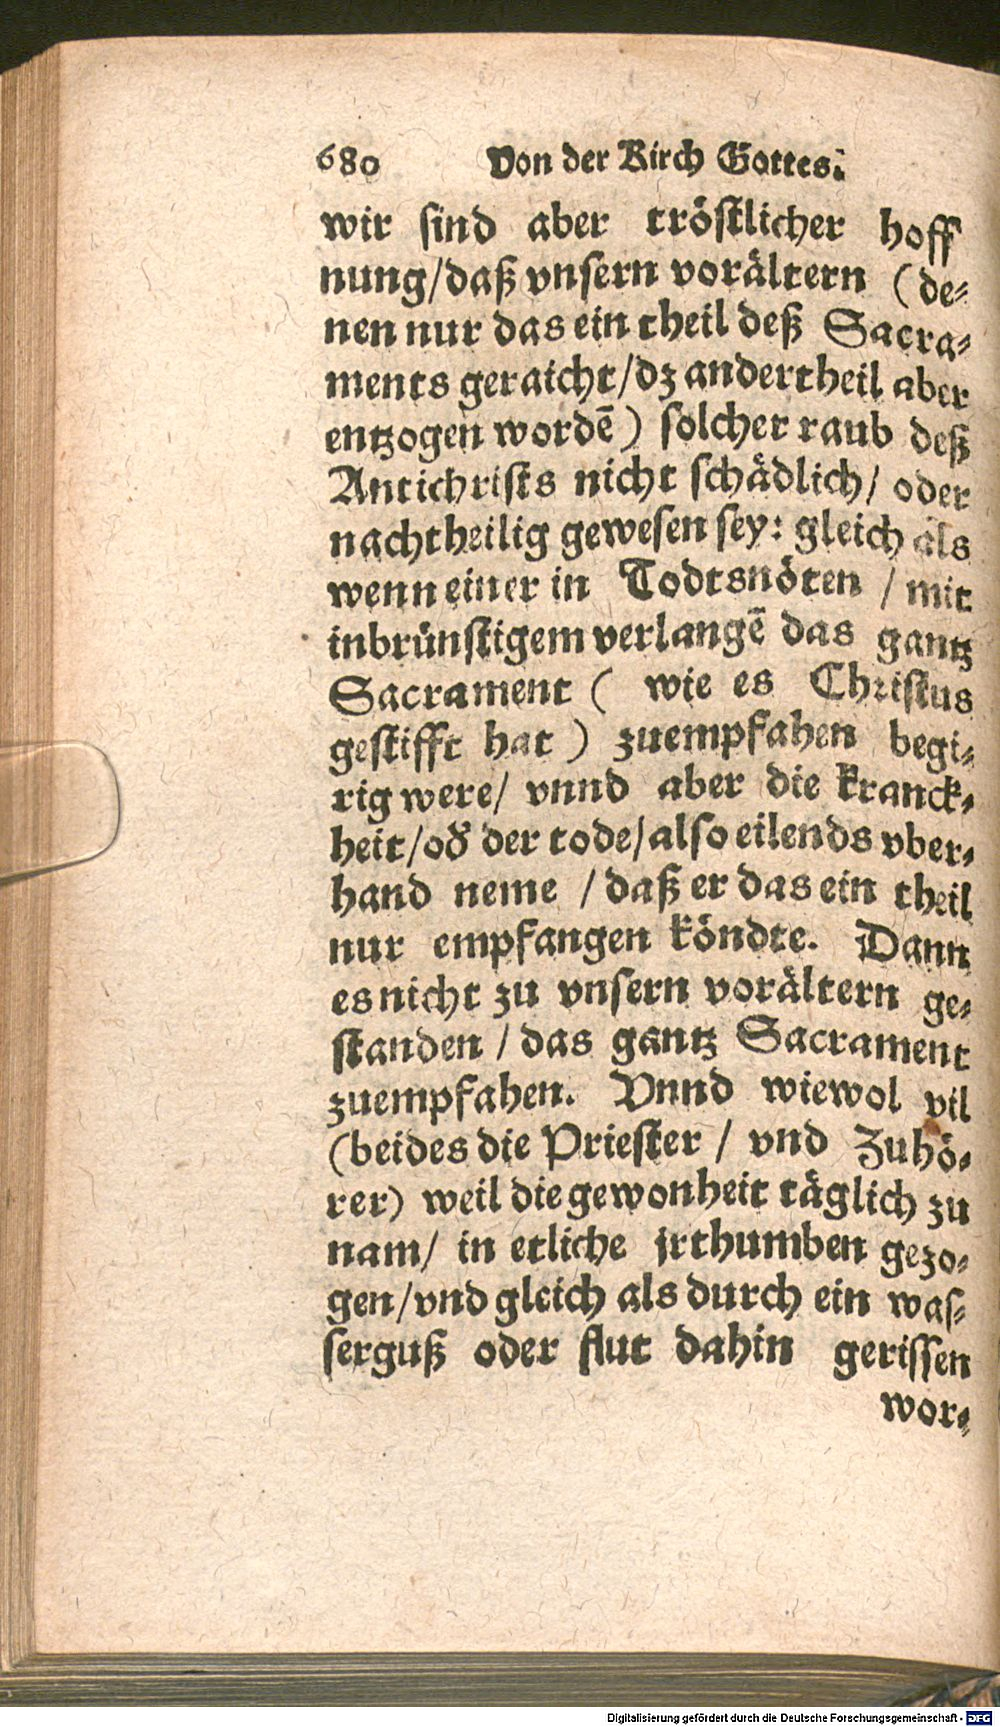 680 Von der Kirch Gottes.
wir sind aber tröstlicher hoff
nung/daß vnsern vorältern (de-
nen nur das ein theil deß Sacra-
ments geraicht/dz andertheil aber
entzogen wordē) solcher raub deß
Antichrists nicht schädlich/ oder
nachtheilig gewesen sey: gleich als
wenn einer in Todtsnöten / mit
inbrünstigem verlangē das gantz
Sacrament ( wie es Christus
gestifft hat ) zuempfahen begi-
rig were/ vnnd aber die kranck-
heit/oď der tode/also eilends vber-
hand neme /daß er das ein theil
nur empfangen köndte. Dann
es nicht zu vnsern vorältern ge-
standen /das gantz Sacrament
zuempfahen. Vnnd wiewol vil
(beides die Priester / vnd Zuhö-
rer) weil die gewonheit täglich zu
nam/ in etliche jrthumben gezo-
gen/vnd gleich als durch ein was-
serguß oder flut dahin gerissen
wor-
Digitalisierung gefördert durch die Deutsche Forschungsgemeinschaft - DFG